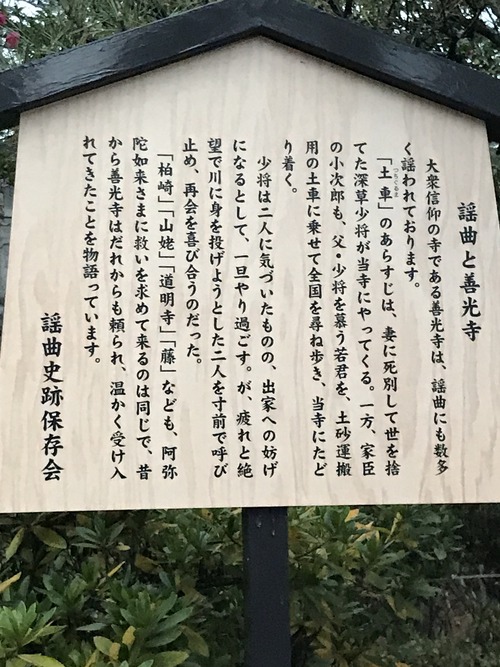 謡曲と善光寺
大衆信仰の寺である善光寺は、謡曲にも数多
く謡われております。
「土車」のあらすじは、妻に死別して世を捨
つちぐるま
てた深草少将が当寺にやってくる。一方、家臣
の小次郎も、父・少将を慕う若君を、土砂運搬
用の土車に乗せて全国を尋ね歩き、当寺にたど
り着く。
少将は二人に気づいたものの、出家への妨げ
になるとして、一旦やり過ごす。が、疲れと絶
望で川に身を投げようとした二人を寸前で呼び
止め、再会を喜び合うのだった。
「柏崎」「山姥」「道明寺」「藤」なども、阿弥
陀如来さまに救いを求めて来るのは同じで、昔
から善光寺はだれからも頼られ、温かく受け入
れてきたことを物語っています。
謡曲史跡保存会